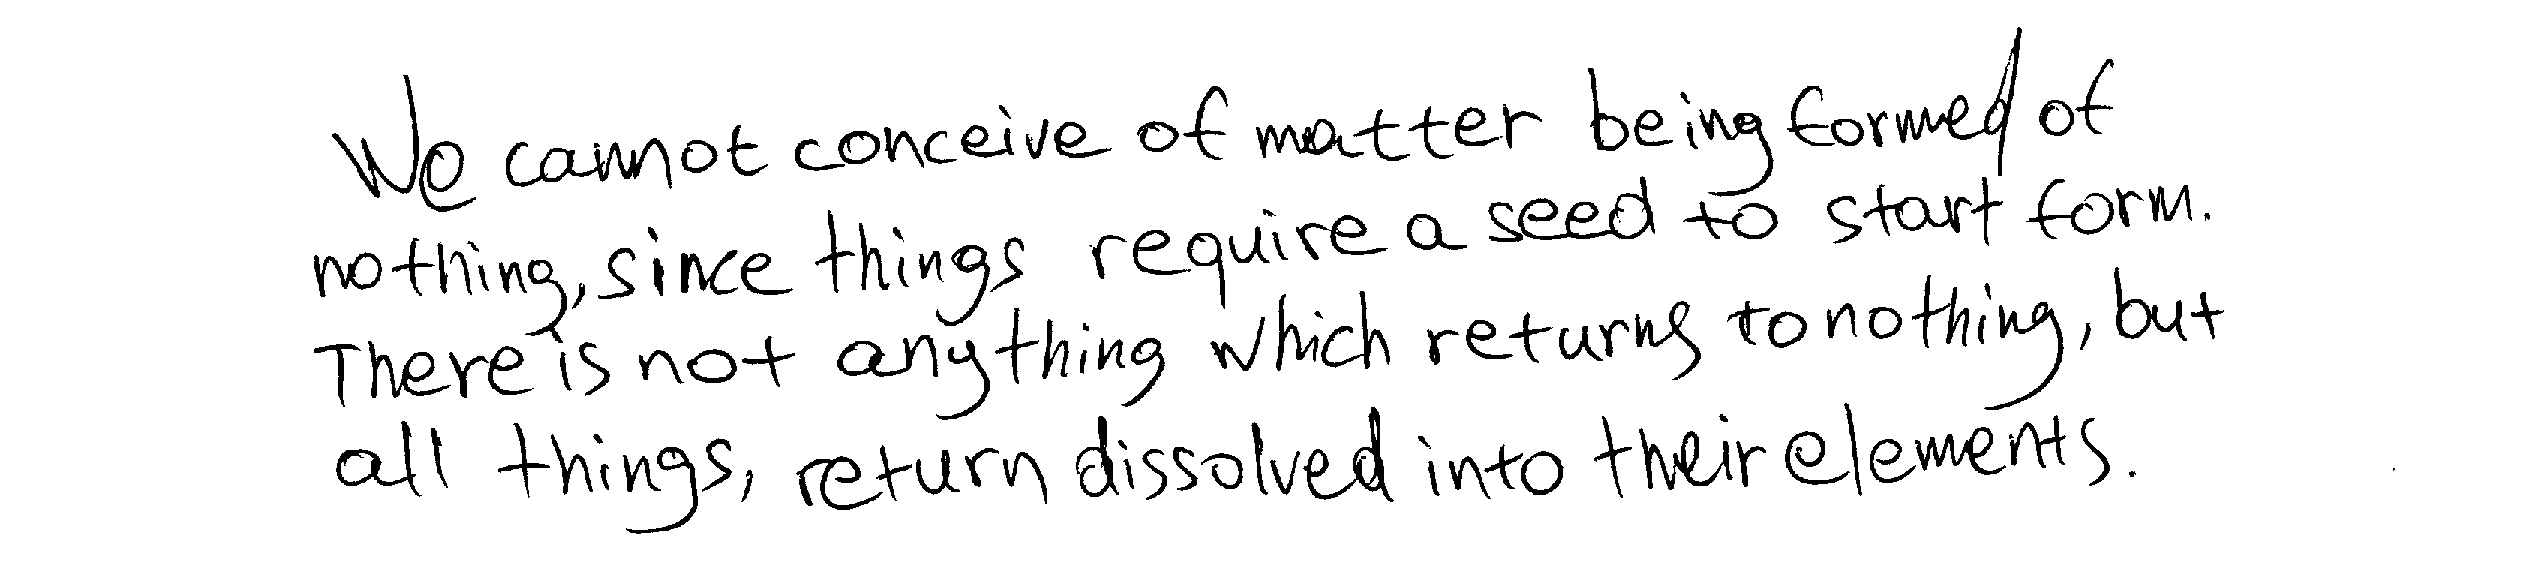 We cannot conceive of matter being formed of
nothing, since things require a seed to start form.
There is not anything which returns to nothing, but
all things, return dissolved into their elements.